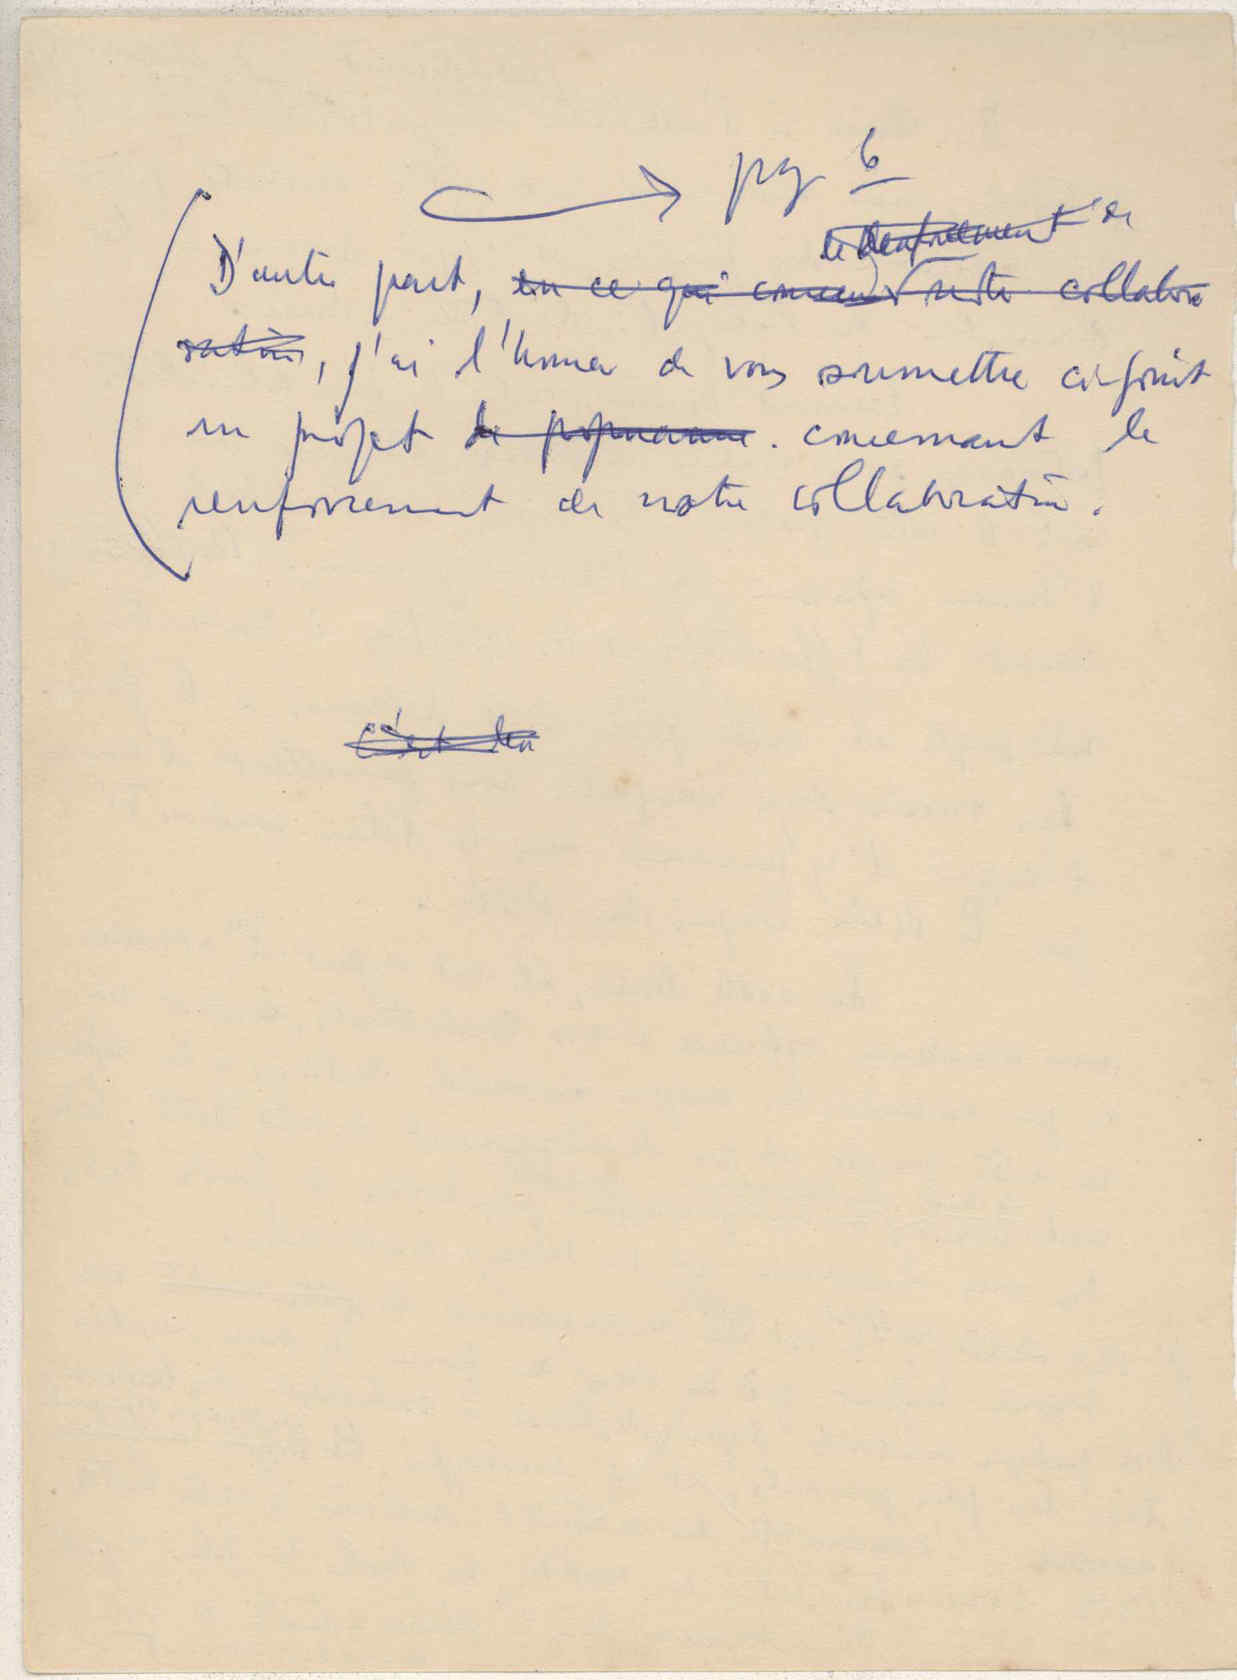 → pg 6
le renforcement de
D'autre part, en ce qui concerne notre collabo
ration, j'ai l'honneur de vous soumettre ci-joint
un projet de programme. concernant le
renforcement de notre collaboration.
c'est des